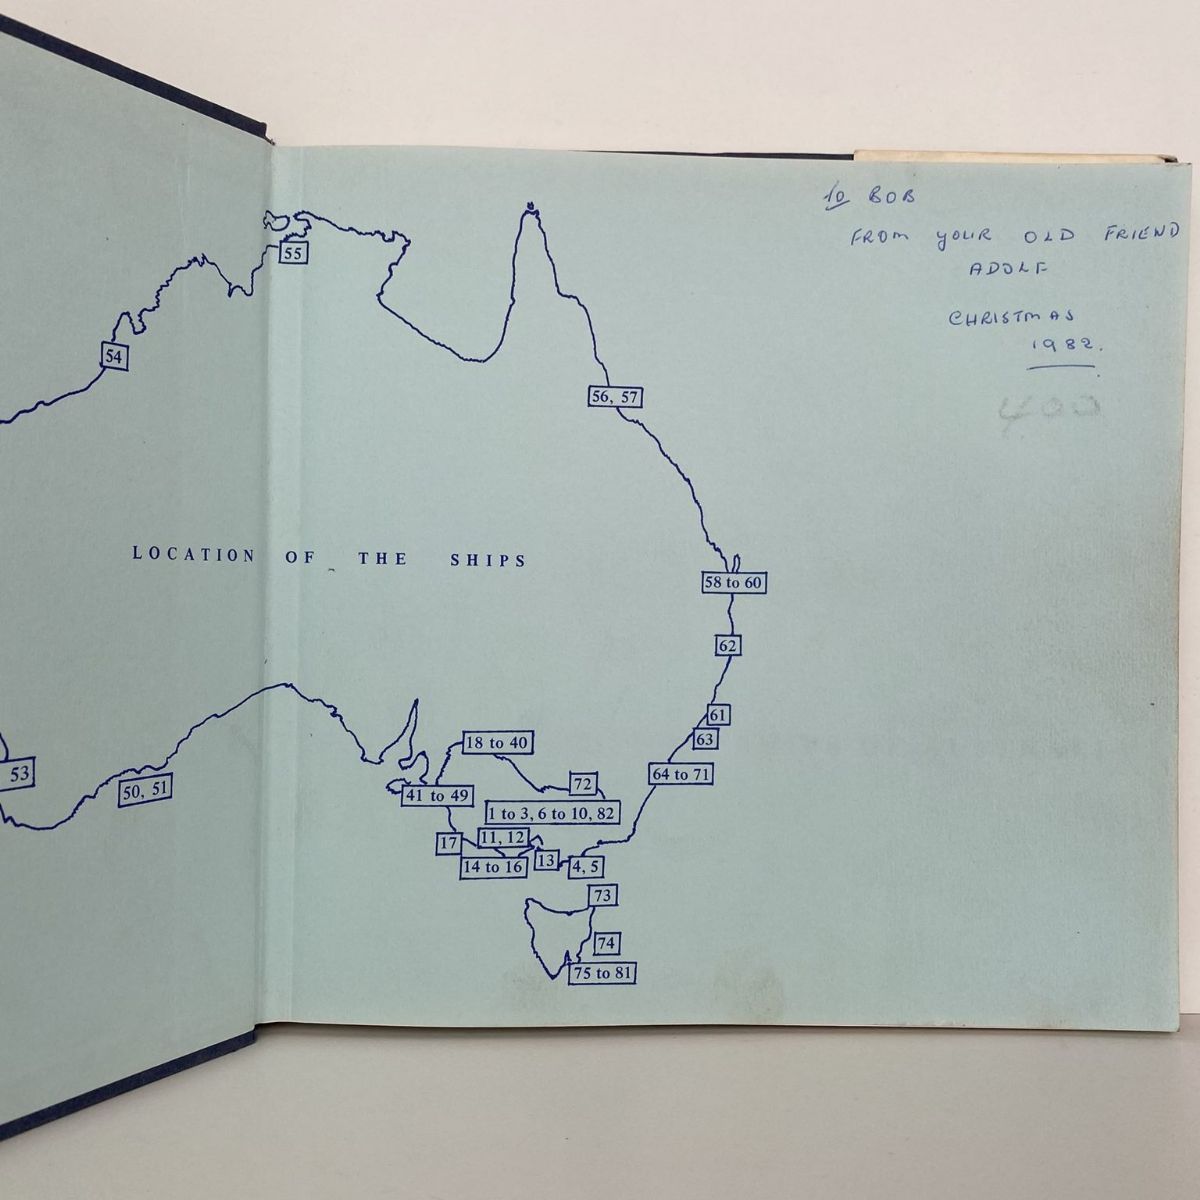 to BOB
FROM YOUR OLD FRIEND
ADOLF
CHRISTMAS
1982.
400
55
54
56, 57
LOCATION OF THE SHIPS
58 to 60
62
61
63
18 to 40
53
50, 51
64 to 71
72
41 to 49
1 to 3, 6 to 10, 82
17
11, 12
14 to 16
13
4, 5
73
74
75 to 81